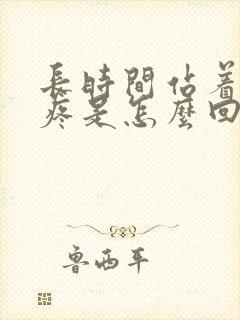 長時間站着
疼是怎麼回
魯西平